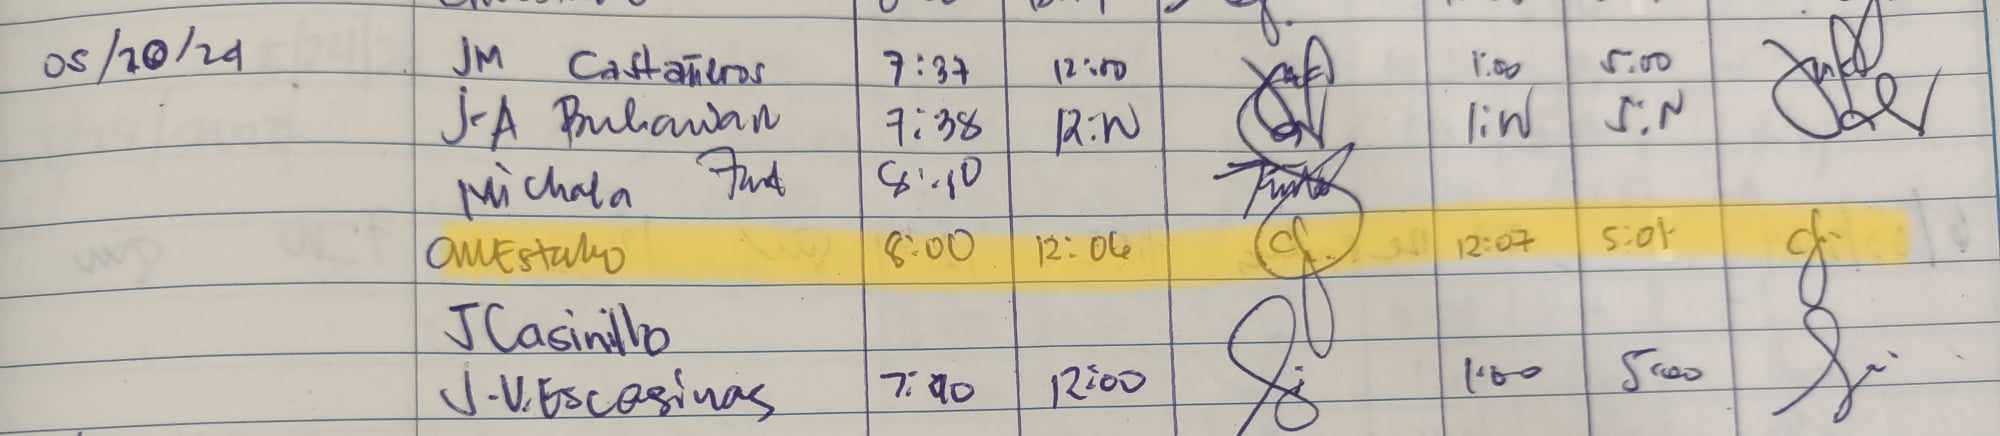 05/20/24 JM Castañeros 7:37 12:00 1:00 5:00
J-A Buhawan 7:38 12:N 1:N 5:N
Michala 8:10
OMEstabo 8:00 12:06 12:07 5:01
J Casinillo
J.V. Escasinas 7:40 12:00 1:00 5:00